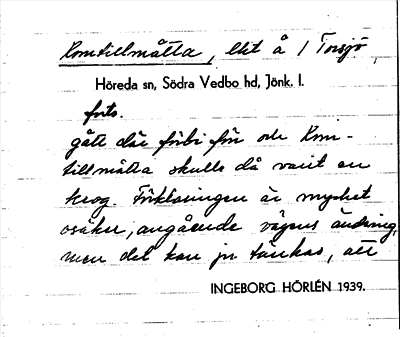 Komtillmåtta, litet å / Torsjö,
Höreda sn, Södra Vedbo hd, Jönk. l.
forts.
gått där förbi för och Kom-
tillmåtta skulle då varit en
krog. Förklaringen är mycket
osäker, angående vägens ändring,
men det kan ju tänkas, att
INGEBORG HÖRLÉN 1939.